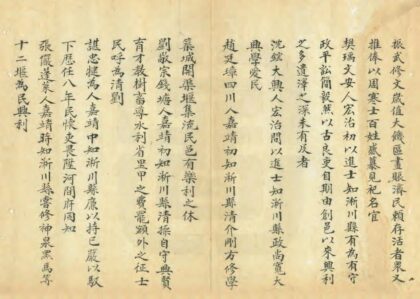 振武修文歲值大饑區畫賑濟民賴存活者眾又
推俸以周寒士百姓感慕見祀名宦
樊瑀文安人宏治初以進士知淅川縣有為有守
政平訟簡毅然以古良吏自期由創邑以來興利
之多遺澤之深未有及者
沈鋐大興人宏治間以進士知淅川縣政尚寬大
興學愛民
趙廷璋四川人嘉靖初知淅川縣清介剛方修學
築城開渠堰集流民邑有樂利之休
劉敬宗錢塘人嘉靖初知淅川縣清操自守興賢
育才教樹畜導水利省里甲之費罷額外之征士
民呼為清劉
諶忠犍為人嘉靖中知淅川縣廉以持己嚴以馭
下歷任八年民懷吏畏陞河間府同知
張儼蓬萊人嘉靖時知淅川縣嘗修神泉黑馬等
十二堰為民興利